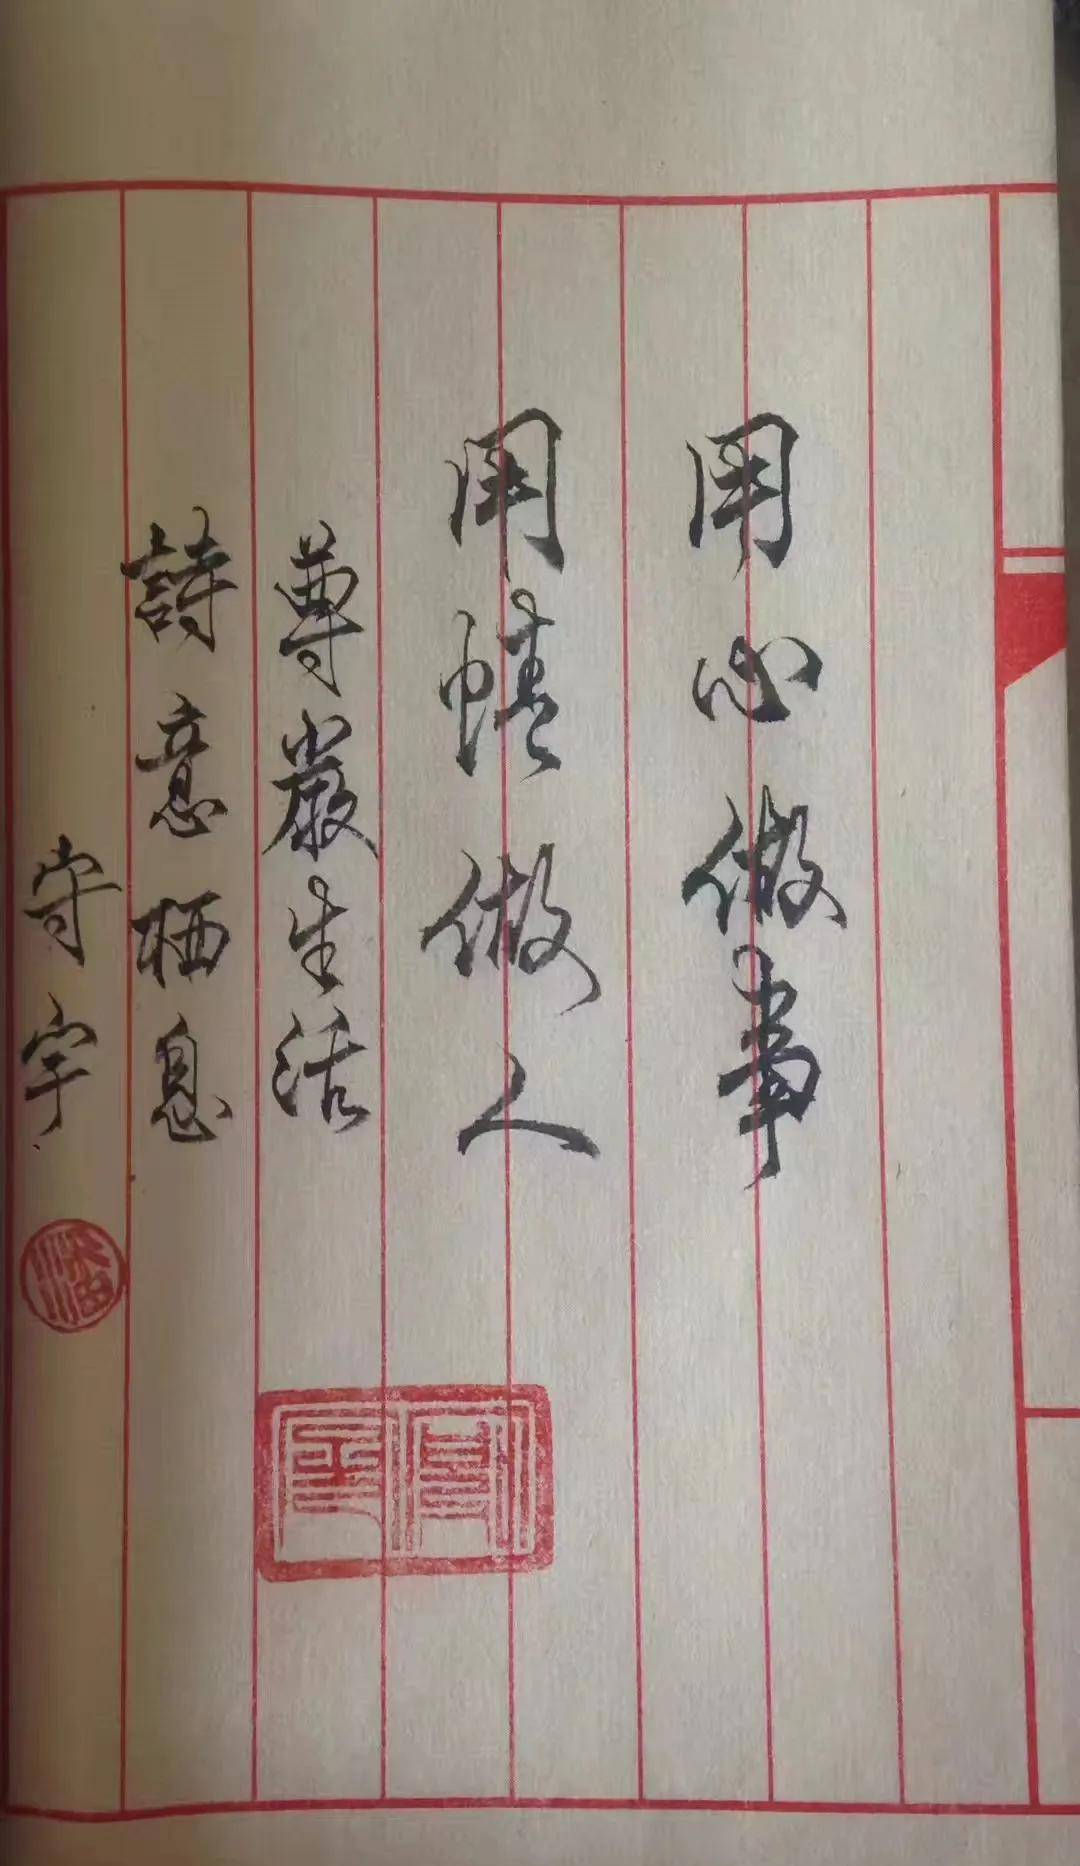 用心做事
用情做人
尊嚴生活
詩意栖息
守宇